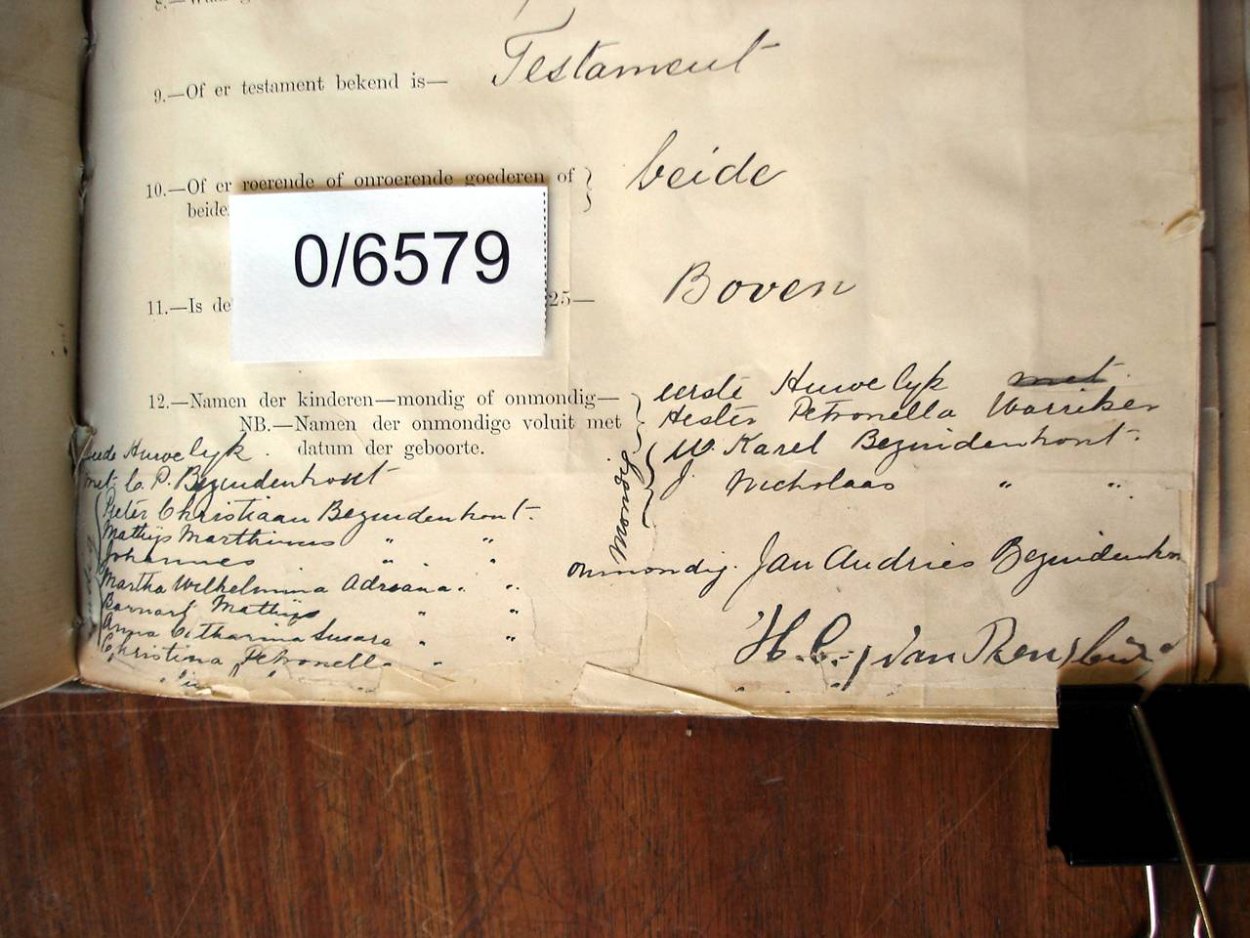 9.—Of er testament bekend is— Testament
10.—Of er roerende of onroerende goederen of beide
beide
0/6579
11.—Is de 25— Boven
12.—Namen der kinderen—mondig of onmondig—
NB.—Namen der onmondige voluit met
datum der geboorte.
eerste Huwelyk met
Hester Petronella Warriker
W. Karel Bezuidenhout.
J. Nicholaas " "
Mondig
onmondig. Jan Andries Bezuidenhou
H. C. J van Rensburg
Huwelyk.
met C. P. Bezuidenhout
Pieter Christiaan Bezuidenhout
Mathys Marthinus " "
Johannes " "
Martha Wilhelmina Adreana " "
Barnart Mathys " "
Anna Catharina Susara " "
Christina Petronella "